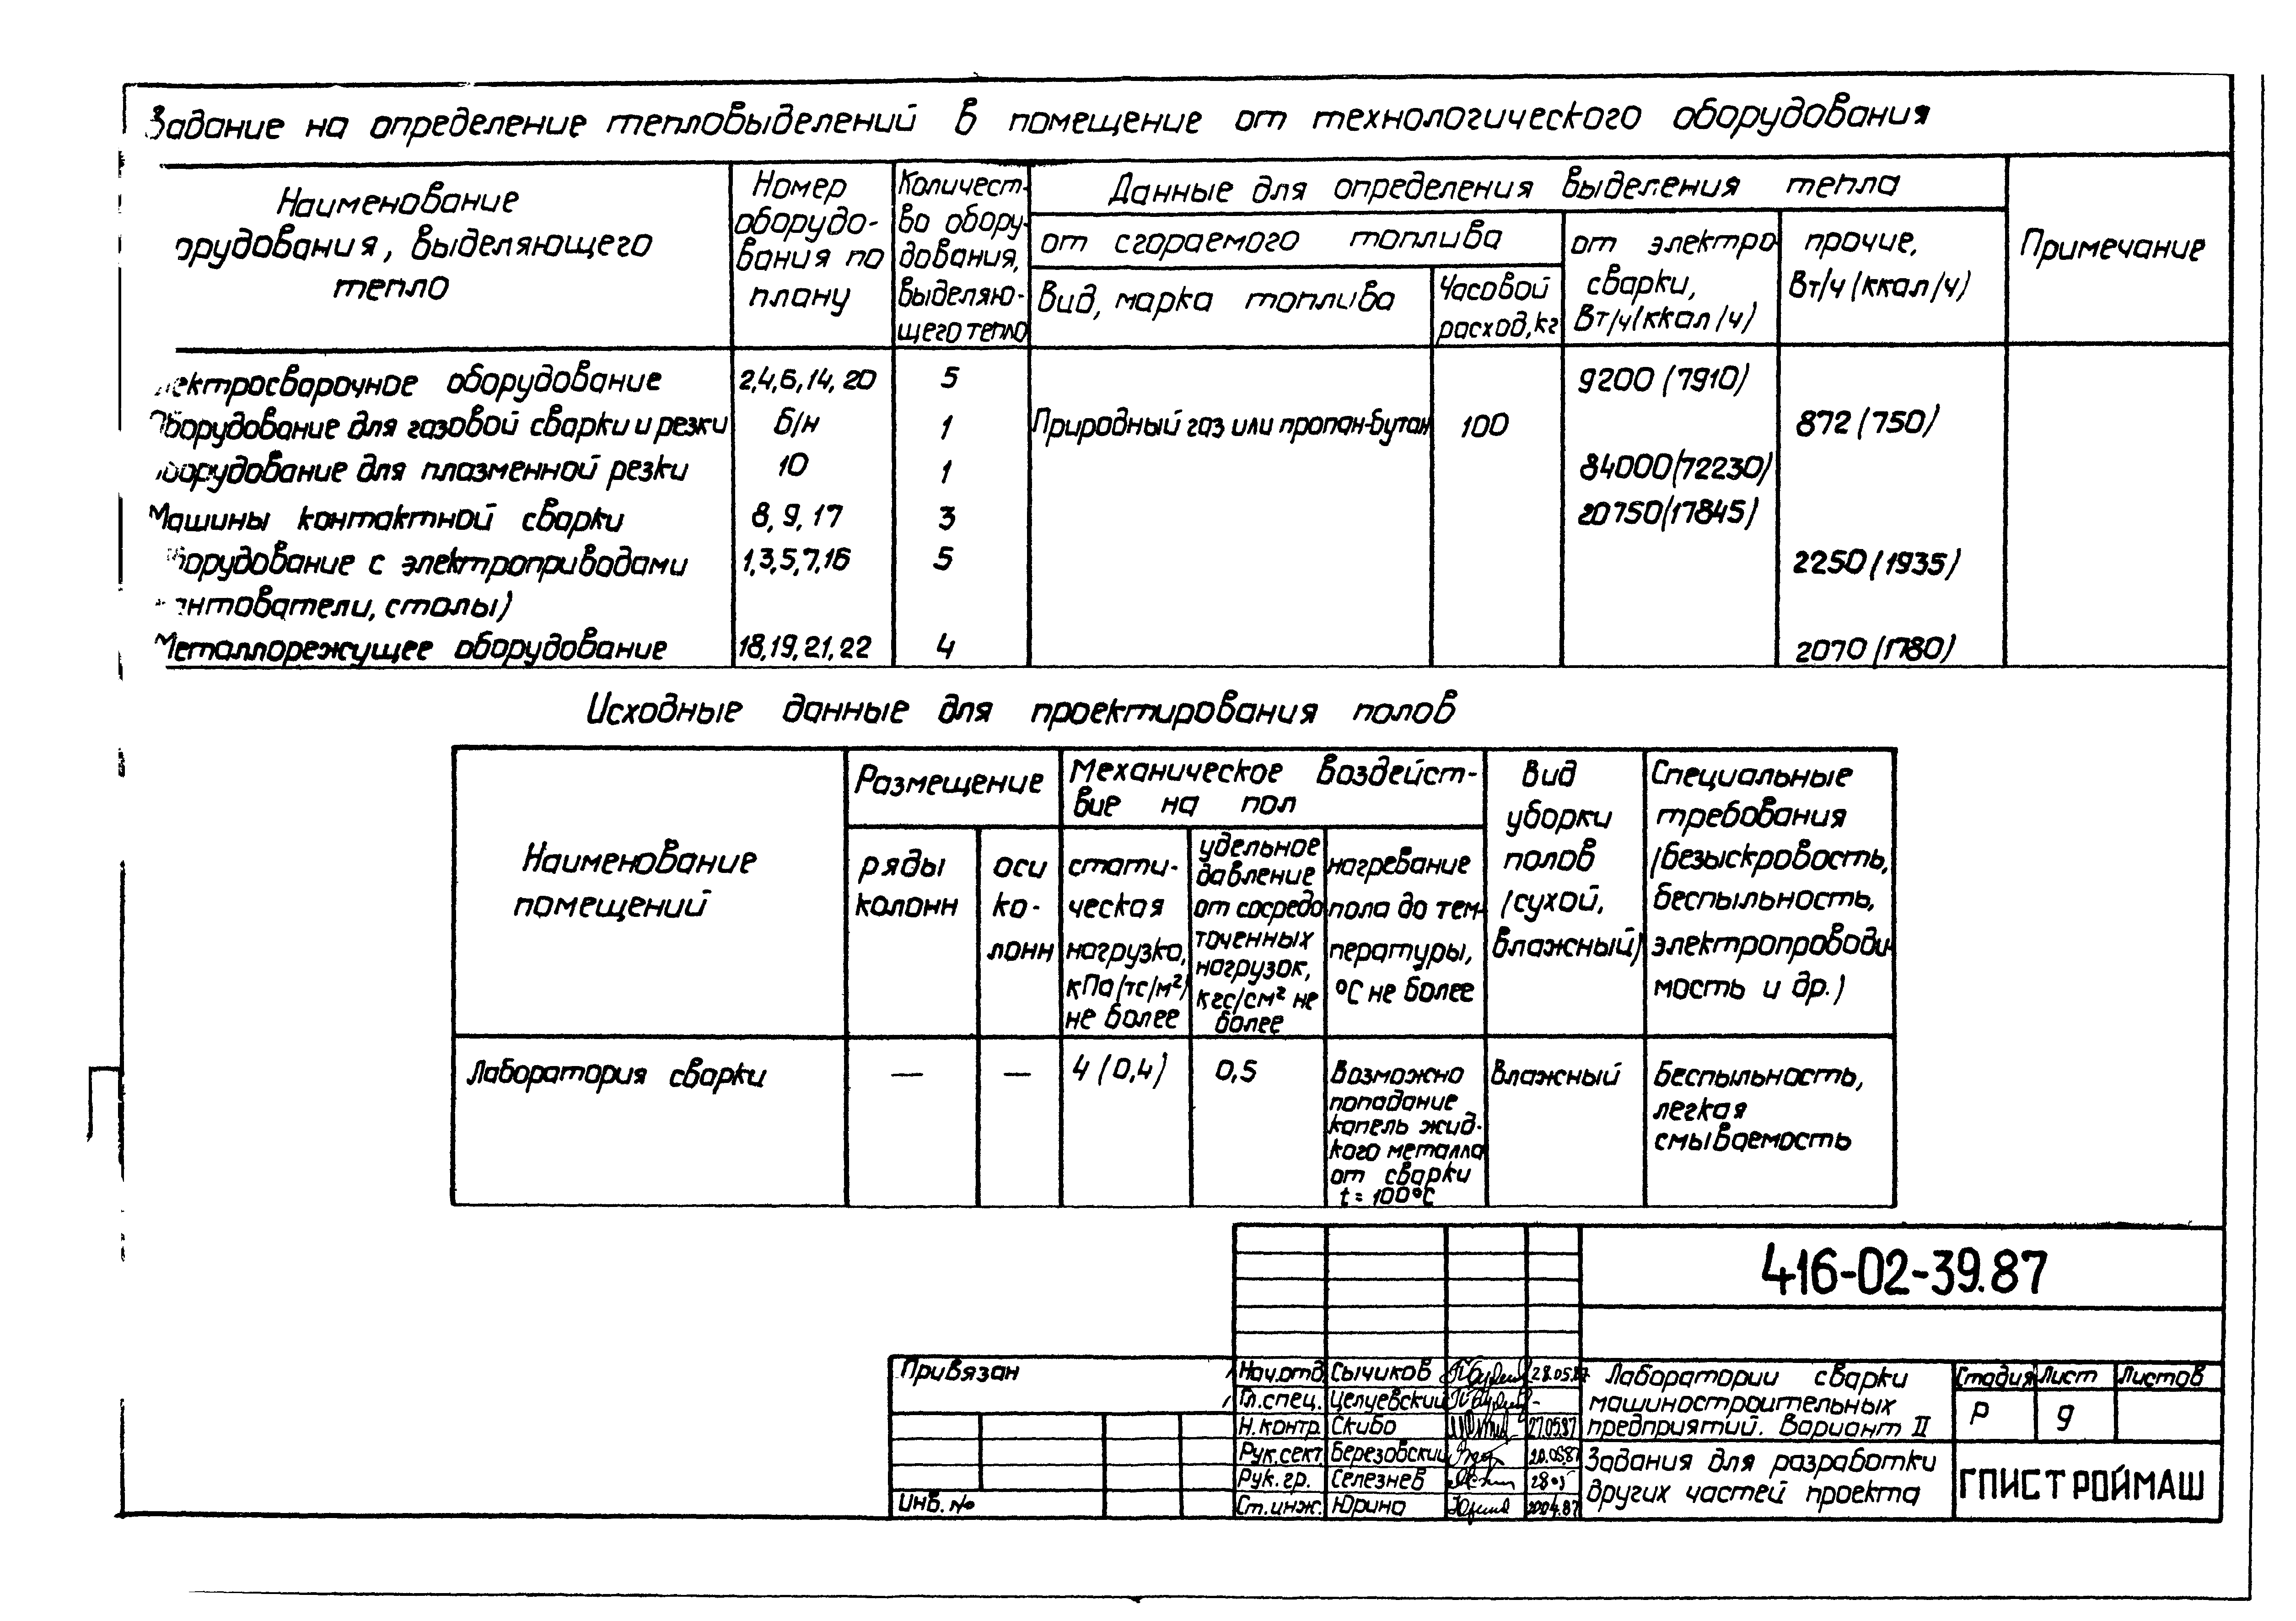 Задание на определение тепловыделений в помещение от технологического оборудования
Наименование
орудования, выделяющего
тепло
Номер
оборудо-
вания по
плану
Количест-
во обору-
дования,
выделяю-
щего тепло
Данные для определения выделения тепла
от сгораемого топлива
Вид, марка топлива
Часовой
расход, кг
от электро
сварки,
Вт/ч(ккал/ч)
прочие,
Вт/ч(ккал/ч)
Примечание
лектросварочное оборудование 2,4,6,14,20 5 9200(7910)
Оборудование для газовой сварки и резки б/н 1 Природный газ или пропан-бутан 100 872(750)
борудование для плазменной резки 10 1 84000(72230)
Машины контактной сварки 8,9,17 3 20750(17845)
орудование с электроприводами 1,3,5,7,16 5 2250(1935)
антователи, столы)
Металлорежущее оборудование 18,19,21,22 4 2070(1780)
Исходные данные для проектирования полов
Наименование
помещений
Размещение
ряды
колонн
оси
ко-
лонн
Механическое воздейст-
вие на пол
стати-
ческая
нагрузка,
кПа(тс/м²)
не более
удельное
давление
от сосредо
точенных
нагрузок,
кгс/см² не
более
нагревание
пола до тем-
пературы,
°С не более
Вид
уборки
полов
(сухой,
влажный)
Специальные
требования
(безыскровость,
беспыльность,
электропроводи-
мость и др.)
Лаборатория сварки — — 4(0,4) 0,5
Возможно
попадание
капель жид-
кого металла
от сварки
t=100°С
Влажный
Беспыльность,
легкая
смываемость
416-02-39.87
Привязан
Инв. №
Нач.отд. Сычиков 28.05.87
Гл.спец. Целуевский -
Н.контр. Скибо 27.05.87
Рук.сект. Березовский 20.05.87
Рук.гр. Селезнев 28.05
Ст.инж. Юрина 20.04.87
Лаборатории сварки
машиностроительных
предприятий. Вариант II
Задания для разработки
других частей проекта
Стадия Лист Листов
Р 9
ГПИСТРОЙМАШ